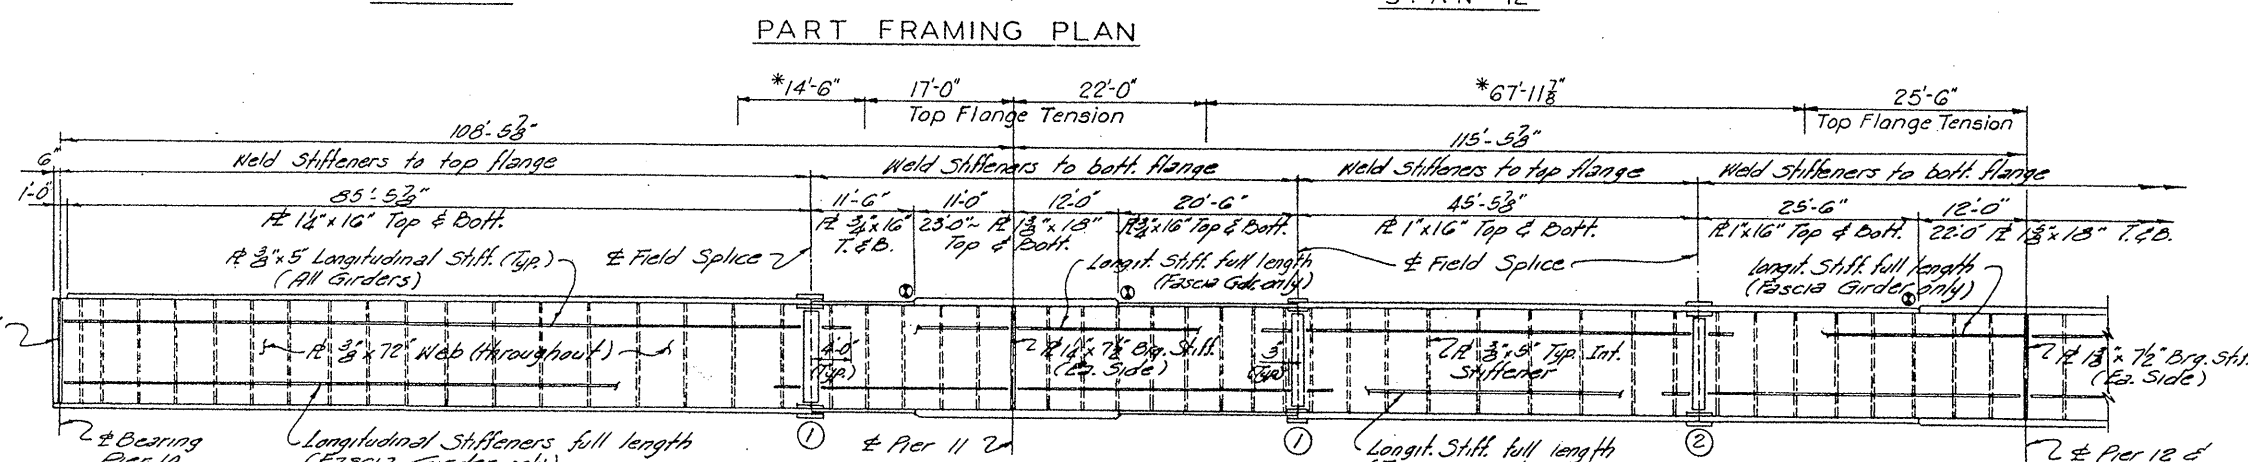 PART FRAMING PLAN
*14'-6"
17'-0"
22'-0"
*67'-11 7/8"
25'-6"
Top Flange Tension
Top Flange Tension
108'-5 7/8"
115'-5 7/8"
6"
Weld Stiffeners to top flange
Weld Stiffeners to bott. flange
Weld Stiffeners to top flange
Weld Stiffeners to bott. flange
1'-0"
85'-5 7/8"
11'-6"
11'-0"
12'-0"
20'-6"
45'-5 7/8"
25'-6"
12'-0"
℄ Field Splice
PL 1 1/4" x 16" Top & Bott.
PL 3/4" x 16"
T. & B.
23'-0" ~ PL 1 3/8" x 18"
Top & Bott.
PL 3/4" x 16" Top & Bott.
PL 1" x 16" Top & Bott.
PL 1" x 16" Top & Bott.
22'-0" PL x 18" T. & B.
PL 3/8" x 5" Longitudinal Stiff. (Typ.)
(All Girders)
Longit. Stiff. full length
(Fascia Gdr. only)
℄ Field Splice
Longit. Stiff. full length
(Fascia Girder only)
PL 3/8" x 72" Web (throughout)
4'-0"
(Typ.)
PL 1 1/4" x 7 1/2" Brg. Stiff.
(Ea. Side)
3"
(Typ.)
PL 3/8" x 5" Typ. Int.
Stiffener
x 7 1/2" Brg. Stiff.
(Ea. Side)
℄ Bearing
Pier 10
Longitudinal Stiffeners full length
(Fascia Girder only)
1
℄ Pier 11
1
Longit. Stiff. full length
2
℄ Pier 12 &